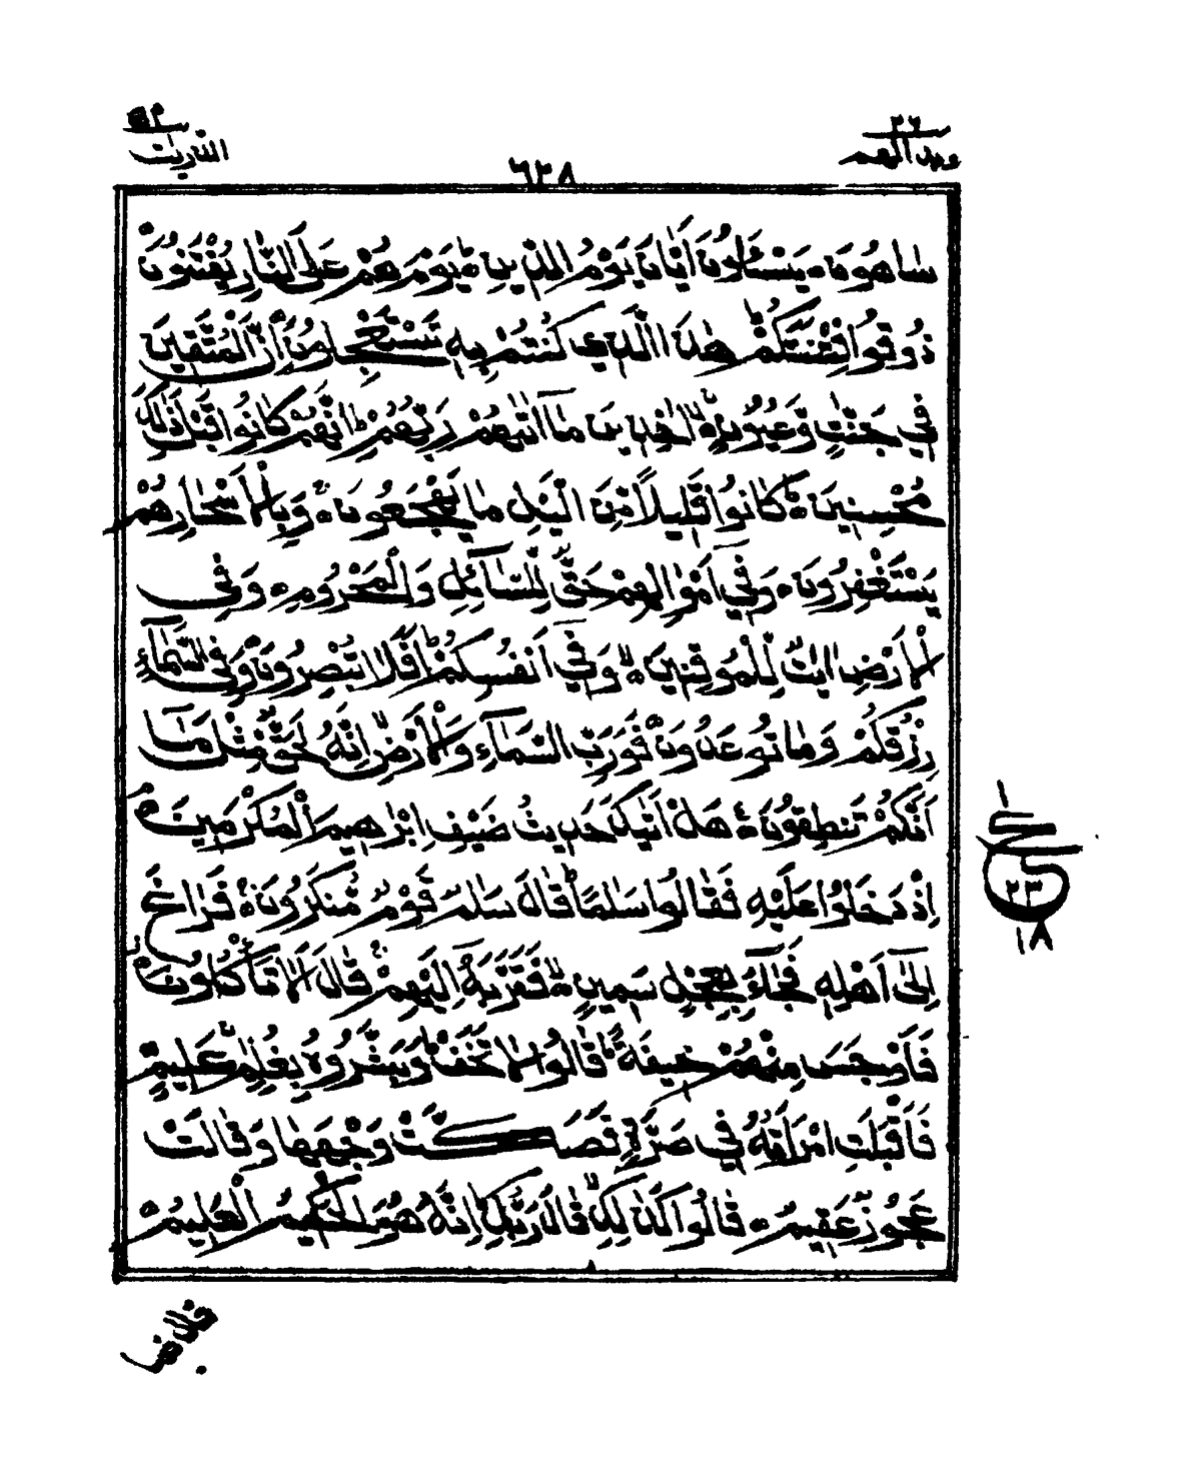 ٢٦
حم
٥١
الذريت
٦٣٨
سَاهُوْنَ ۝ يَسْـَٔلُوْنَ اَيَّانَ يَوْمُ الدِّيْنِ ۝ يَوْمَ هُمْ عَلَى النَّارِ يُفْتَنُوْنَ ۝
ذُوْقُوْا فِتْنَتَكُمْ ؕ هٰذَا الَّذِيْ كُنْتُمْ بِهٖ تَسْتَعْجِلُوْنَ ۝ اِنَّ الْمُتَّقِيْنَ
فِيْ جَنّٰتٍ وَّعُيُوْنٍ ۝ اٰخِذِيْنَ مَآ اٰتٰىهُمْ رَبُّهُمْ ؕ اِنَّهُمْ كَانُوْا قَبْلَ ذٰلِكَ
مُحْسِنِيْنَ ۝ كَانُوْا قَلِيْلًا مِّنَ الَّيْلِ مَا يَهْجَعُوْنَ ۝ وَبِالْاَسْحَارِ هُمْ
يَسْتَغْفِرُوْنَ ۝ وَفِيْٓ اَمْوَالِهِمْ حَقٌّ لِّلسَّآئِلِ وَالْمَحْرُوْمِ ۝ وَفِي
الْاَرْضِ اٰيٰتٌ لِّلْمُوْقِنِيْنَ ۝ وَفِيْٓ اَنْفُسِكُمْ ؕ اَفَلَا تُبْصِرُوْنَ ۝ وَفِي السَّمَآءِ
رِزْقُكُمْ وَمَا تُوْعَدُوْنَ ۝ فَوَرَبِّ السَّمَآءِ وَالْاَرْضِ اِنَّهٗ لَحَقٌّ مِّثْلَ مَآ
اَنَّكُمْ تَنْطِقُوْنَ ۝ هَلْ اَتٰىكَ حَدِيْثُ ضَيْفِ اِبْرٰهِيْمَ الْمُكْرَمِيْنَ ۝
اِذْ دَخَلُوْا عَلَيْهِ فَقَالُوْا سَلٰمًا ؕ قَالَ سَلٰمٌ ۚ قَوْمٌ مُّنْكَرُوْنَ ۝ فَرَاغَ
اِلٰٓى اَهْلِهٖ فَجَآءَ بِعِجْلٍ سَمِيْنٍ ۝ فَقَرَّبَهٗٓ اِلَيْهِمْ قَالَ اَلَا تَاْكُلُوْنَ ۝
فَاَوْجَسَ مِنْهُمْ خِيْفَةً ؕ قَالُوْا لَا تَخَفْ ؕ وَبَشَّرُوْهُ بِغُلٰمٍ عَلِيْمٍ ۝
فَاَقْبَلَتِ امْرَاَتُهٗ فِيْ صَرَّةٍ فَصَكَّتْ وَجْهَهَا وَقَالَتْ
عَجُوْزٌ عَقِيْمٌ ۝ قَالُوْا كَذٰلِكِ ۙ قَالَ رَبُّكِ ؕ اِنَّهٗ هُوَ الْحَكِيْمُ الْعَلِيْمُ ۝
١
ع
٢٣
١٨